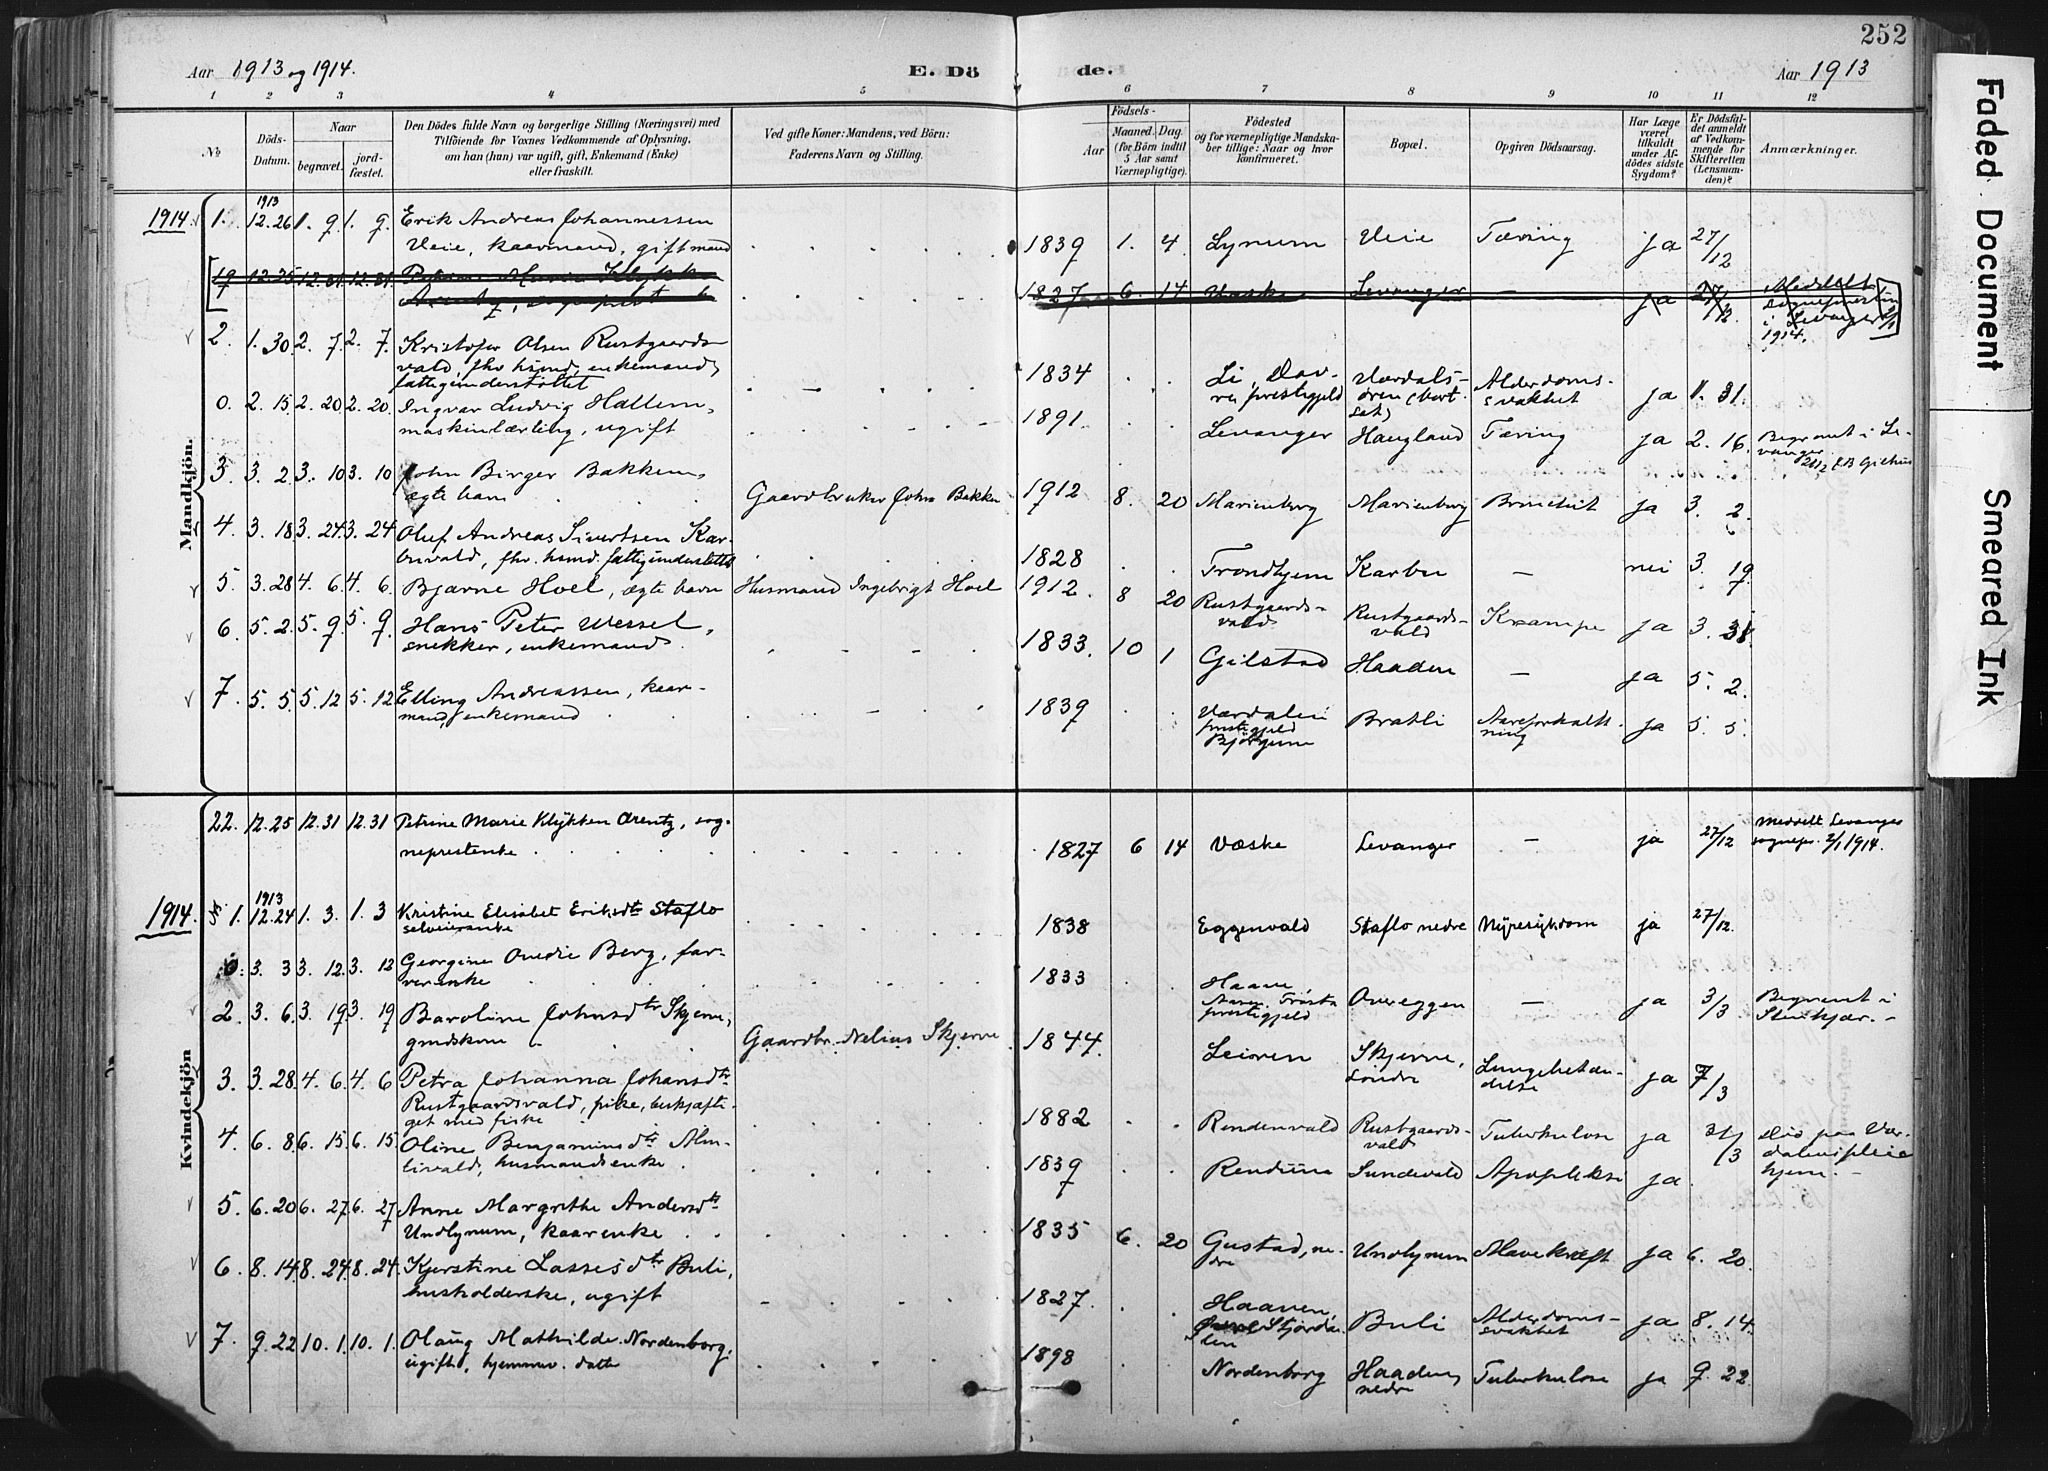 252
Aar 1913 og 1914.
E. Dö
de.
Aar 1913
1 2 3 4 5 6 7 8 9 10 11 12
No
Döds-Datum.
Naar
begravet.
jord-fæstet.
Den Dödes fulde Navn og borgerlige Stilling (Næringsvei) med
Tilföiende for Voxnes Vedkommende af Oplysning,
om han (hun) var ugift, gift, Enkemand (Enke)
eller fraskilt.
Ved gifte Koner: Mandens, ved Börn:
Faderens Navn og Stilling.
Födsels-
Aar
Maaned. Dag.
(for Börn indtil
5 Aar samt
Værnepligtige).
Födested
og for værnepligtige Mandska-
ber tillige: Naar og hvor
konfirmeret.
Bopæl.
Opgiven Dödsaarsag.
Har Læge
været
tilkaldt
under Af-
dödes sidste
Sygdom?
Er Dödsfal-
det anmeldt
af Vedkom-
mende for
Skifteretten
(Lensman-
den)?
Anmærkninger.
Mandkjön.
1914 1. 1913 12.26 1. 9 1. 9. Erik Andreas Johannessen
Veie, kaarmand, gift mand 1839 1. 4 Lynum Veie Tæring ja 27/12
19 12.25 12.31 12.31 Petrine Marie Klykken 1827 6. 14 Væske Levanger — ja 27/12 Meddelt
Sognepresten
i Levanger 2/1
1914.
2. 1. 30. 2. 7. 2. 7. Kristofer Olsen Rustgaards-
vald, fhv. husmd, enkemand,
fattigunderstöttet 1834 Li, Dov-
re prestegjeld Værdals-
ören (bort-
sat) Alderdoms-
svakhet ja 1. 31.
0. 2. 15. 2. 20. 2. 20. Ingvar Ludvig Hallem,
maskinlærling, ugift 1891. Levanger Haugland Tæring ja 2. 16. Begravet i Le-
vanger
3. 3. 2. 3. 10 3. 10 John Birger Bakken,
ægte barn Gaardbruker John Bakken 1912 8. 20 Marienborg Marienborg Bronchit ja 3. 2.
4. 3. 18 3. 24. 3. 24 Oluf Andreas Sivertsen Kar-
buvald, fhv. husmd. fattigunderstöttet 1828 Trondhjem Karbu — nei 3. 19.
5. 3. 28 4. 6. 4. 6. Bjarne Hoel, ægte barn Husmand Ingebrigt Hoel 1912. 8 20 Rustgaards-
vald Rustgaards-
vald Krampe ja 3. 31.
6. 5. 2. 5. 9. 5. 9. Hans Peter Wessel,
snekker, enkemand 1833. 10 1 Gilstad Haaden — ja 5. 2.
7. 5. 5. 5. 12 5. 12 Elling Andreassen, kaar-
mand, enkemand 1839 Værdalen
prestegjeld
Björgum Bratli Aareforkalk-
ning ja 5. 5.
Kvindekjön
22. 12.25 12.31 12.31 Petrine Marie Klykken Arentz, sog-
neprestenke 1827 6 14 Væske Levanger — ja 27/12 Meddelt Levanger
sognepr. 2/1 1914.
1914. 1. 1913 12.24 1. 3. 1. 3 Kristine Elisabet Eriksdtr Staflo
selveierenke 1838 Eggenvald Staflo nedre Nyresykdom ja 27/12.
0. 3. 3 3. 12. 3. 12 Georgine Ovedie Berg, far-
verenke 1833 Overeggen — ja 3/3 Begravet i
Stenkjær. —
2. 3. 6. 3. 19 3. 19 Baroline Johnsdtr Skjerve,
grdskone Gaardbr. Nelius Skjerve 1844. Leiren Skjerve,
söndre Lungebetæn-
delse ja 7/3
3. 3. 28. 4. 6. 4. 6 Petra Johanna Johansdtr
Rustgaardsvald, pike, beskjæfti-
get med fiske 1882 Rendenvald Rustgaards-
vald Tuberkulose ja 31/3 Död paa Vær-
dalens pleie-
hjem. —
4. 6. 8. 6. 15. 6. 15. Oline Benjaminsdtr Alm-
livald, husmandsenke 1839 Sundvald Apopleksi ja.
5. 6. 20 6. 27 6. 27 Anne Margrethe Andersdtr
Undlynum, kaarenke 1835 6. 20 Gustad, ne-
dre Undlynum Mavekræft ja 6. 20.
6. 8. 14 8. 24. 8. 24. Kjerstine Lassesdtr Buli,
husholderske, ugift 1827. Haaven,
Stjörda-
len Buli Alderdoms-
svakhet ja 8. 14.
7. 9. 22 10. 1. 10. 1. Olaug Mathilde Nordenborg,
ugift, hjemmev. datter 1898 Nordenborg Haaden,
nedre Tuberkulose ja 9. 22.
Faded Document
Smeared Ink